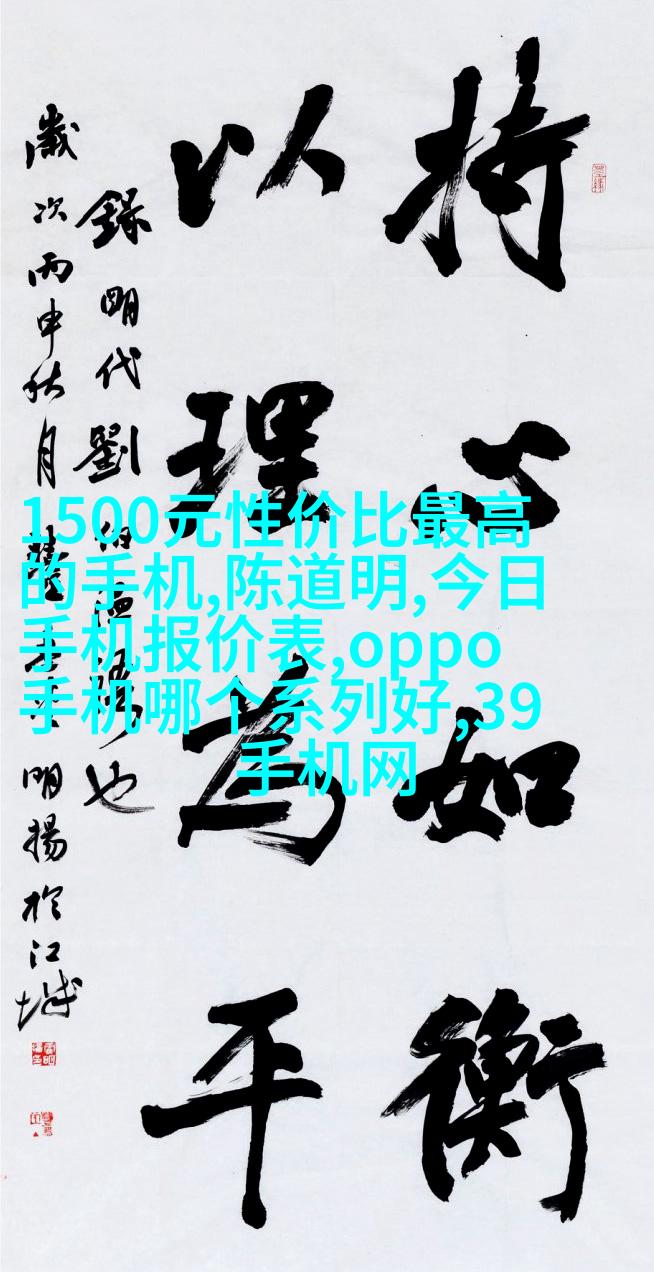 持心如衡
以理為平
錄明代劉伯温語也
歲次丙申秋月
明揚於江城
1500元性价比最高
的手机,陈道明,今日
手机报价表,oppo
手机哪个系列好,39
手机网